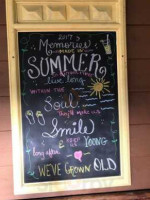 2017
Memories
MADE IN
SUMMER
live long
WITHIN THE
Soul
They'll make you
Smile
KEEP US
YOUNG
long after
WE'VE GROWN OLD